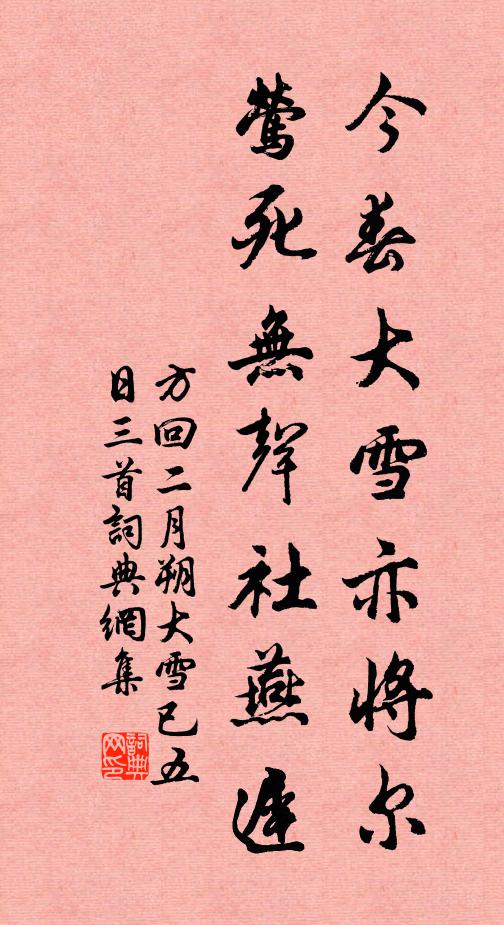 今春大雪亦将尔
莺死無聲社燕遲
方回二月朔大雪已五
日三首詞典網集
詞典
网印